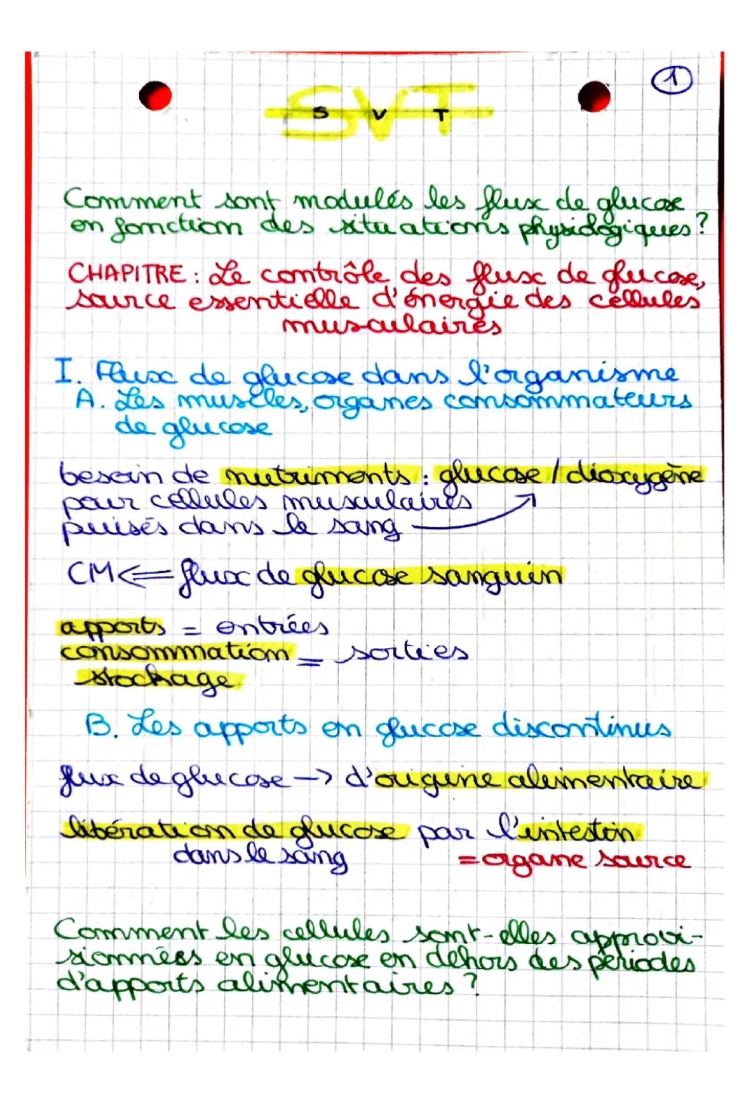 1
S V T
Comment sont modulés les flux de glucose
en fonction des situations physiologiques ?
CHAPITRE : Le contrôle des flux de glucose,
source essentielle d'énergie des cellules
musculaires
I. Flux de glucose dans l'organisme
A. Les muscles, organes consommateurs
de glucose
besoin de nutriments : glucose / dioxygène
pour cellules musculaires
puisés dans le sang
CM <= flux de glucose sanguin
apports = entrées
consommation = sorties
stockage
B. Les apports en glucose discontinus
flux de glucose -> d'origine alimentaire
libération de glucose par l'intestin
dans le sang = organe source
Comment les cellules sont-elles approvi-
sionnées en glucose en dehors des périodes
d'apports alimentaires ?